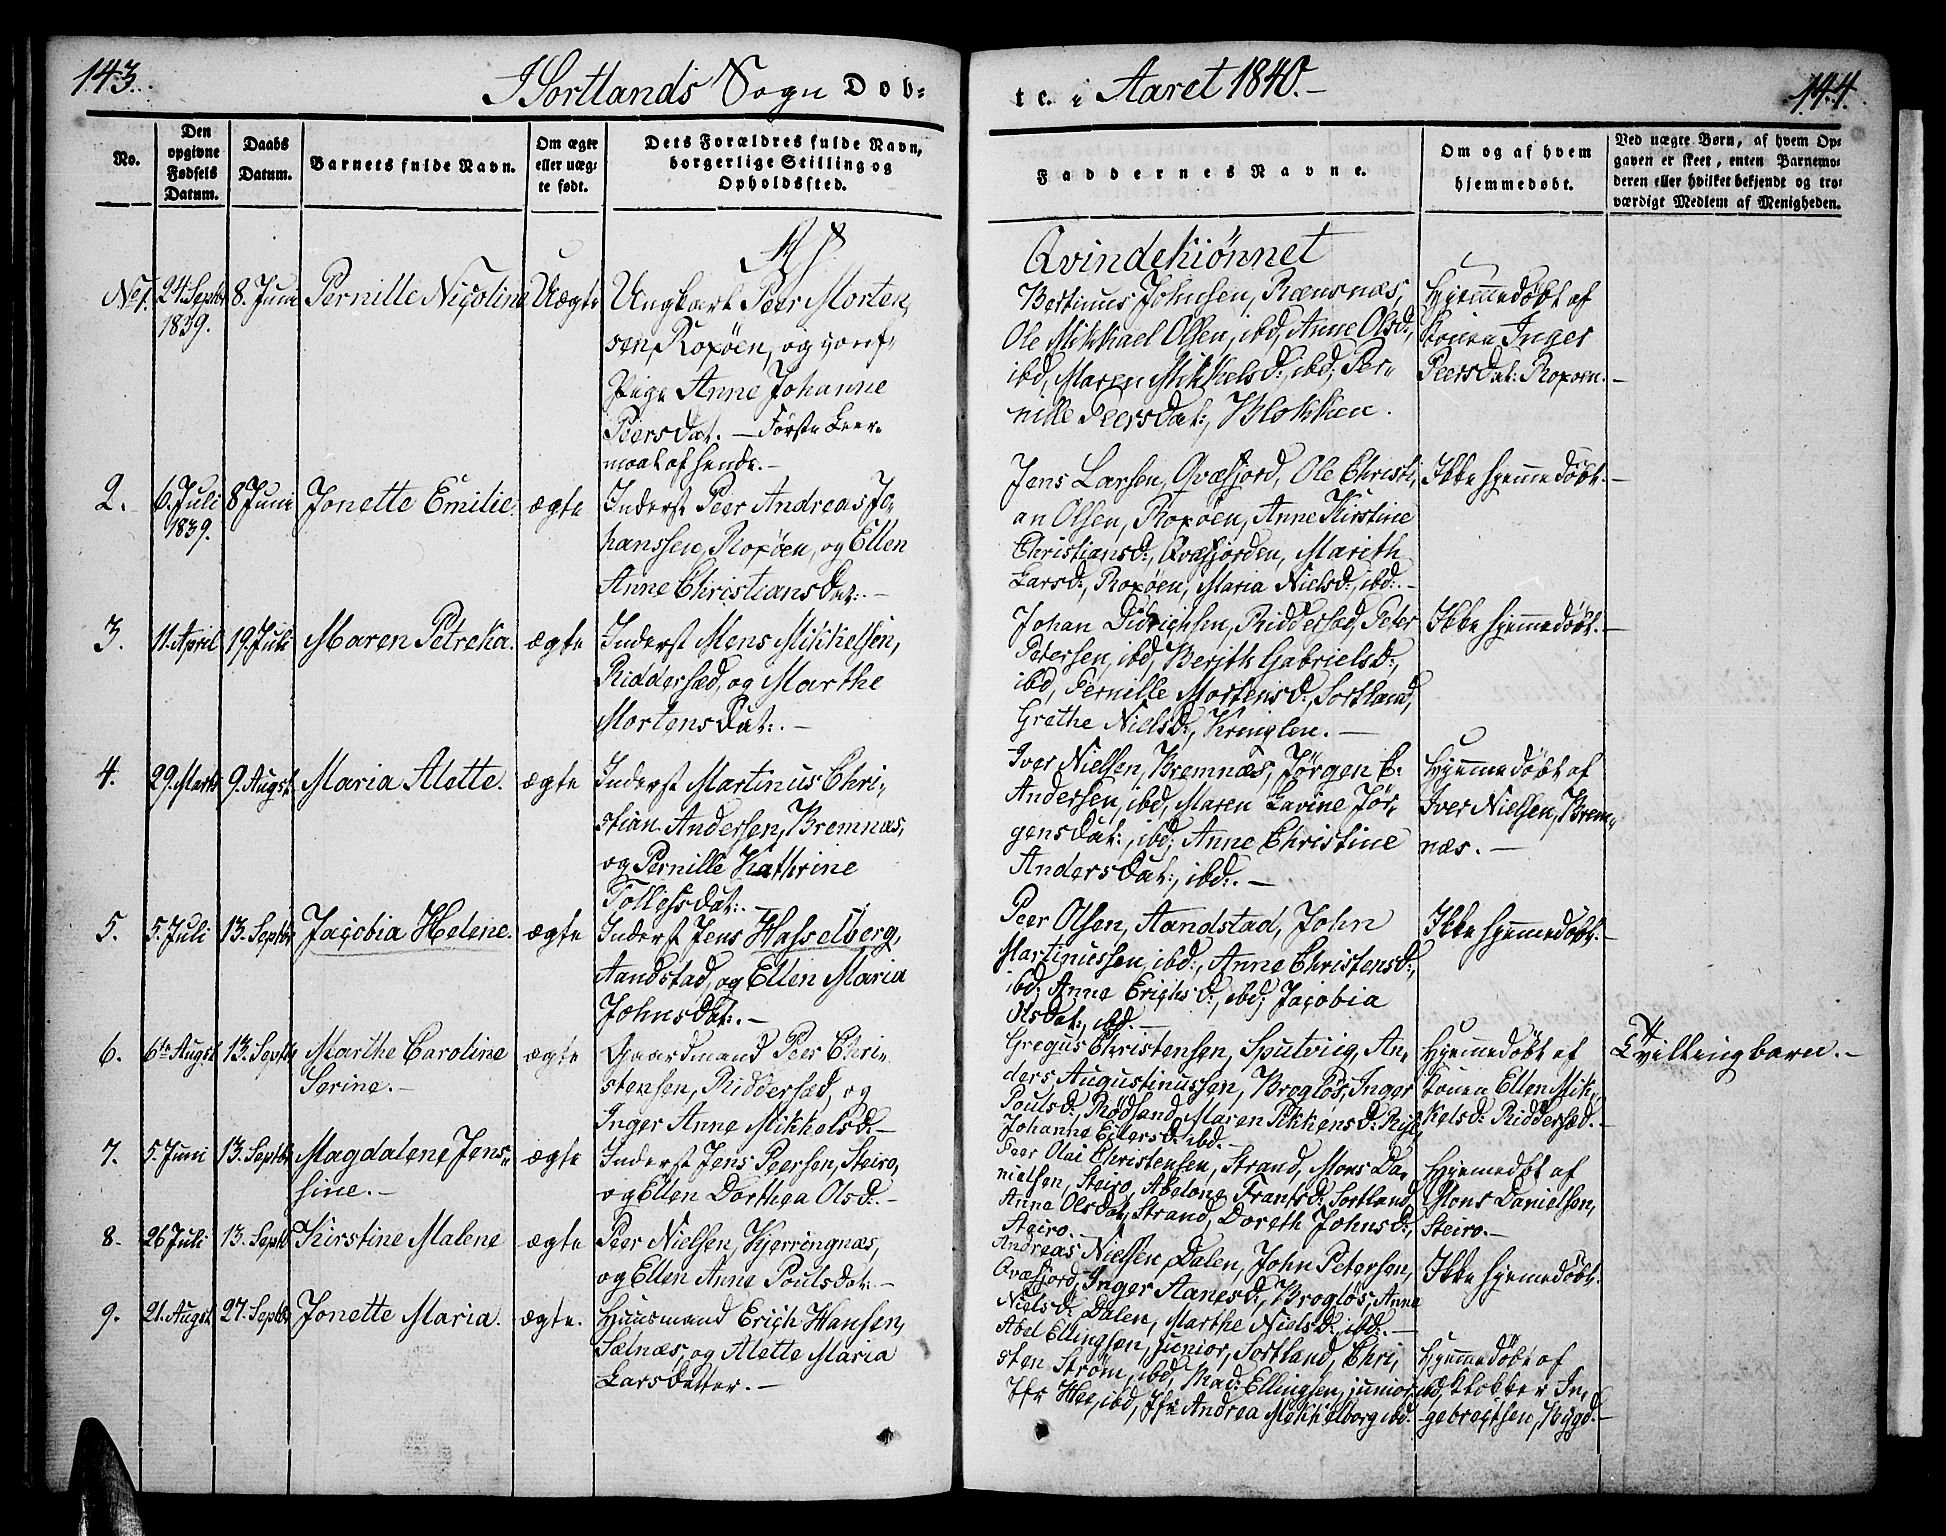 143.
I Sortlands Sogn Døb-
te i Aaret 1840.-
144.
No.
Den opgivne Fødsels Datum.
Daabs Datum.
Barnets fulde Navn.
Om ægte eller uæg-
te født.
Dets Forældres fulde Navn,
borgerlige Stilling og
Opholdssted.
Faddernes Navne.
Om og af hvem
hjemmedøbt.
Ved uægte Børn, af hvem Op-
gaven er skeet, enten Barnemo-
deren eller hvilket bekjendt og tro-
værdigt Medlem af Menigheden.
Qvindekiønnet
No 1.
24. Septbr
1839.
8. Juni
Pernille Nicoline
Uægte
Ungkarl Peer Morten,
sen, Roxøen, og
Pige Anne Johanne
Peersdat. - Første Leier-
maal af hende. -
Bertinus Johnsen, Rænsnæs,
Ole Mikkael Olsen, ibd, Anne Olsd:,
ibd, Maren Mikkelsd:, ibd; Per-
nille Peersdat:, Blokken.
Hjemmedøbt af
Konen Inger
Peersdat: Roxøen. -
2.
6. Juli
1839.
8 Juni
Jonette Emilie.
ægte
Inderst Peer Andreas Jo-
hanssen, Roxøen, og Ellen
Anne Christiansdat:. -
Jens Larsen, Qvæfjord, Ole Christi-
an Olsen, Roxøen, Anne Kirstine
Christiansd:, Qvæfjorden, Marith
Larsd:, Roxøen, Maria Nielsd:, ibd:. -
Ikke hjemmedøbt. -
3.
11. April
19. Juli
Maren Petreka.
ægte
Inderst Mons Mikkelsen,
Riddersæd, og Marthe
Mortensdat:. -
Johan Didrichsen, Riddersæd, Peter
Petersen, ibd, Berith Gabrielsd:,
ibd, Pernille Mortensd:, Sortland,
Grethe Nielsd:, Kringlen. -
Ikke hjemmedøbt. -
4.
29. Marts
9. Augst.
Maria Alette.
ægte
Inderst Martinus Chri-
stian Andersen, Bremnæs,
og Pernille Kathrine
Tollefsdat:. -
Iver Nielsen, Bremnæs, Jørgen C.
Andersen, ibd, Maren Lavine Jør-
gensdat:, ibd; Anne Christine
Andersdat:, ibd:. -
Hjemmedøbt af
Iver Nielsen, Brem-
næs. -
5.
5. Juli
13. Septbr
Jacobia Helene.
ægte
Inderst Jens Hasselberg,
Aandstad, og Ellen Maria
Johnsdat:. -
Peer Olsen, Aandstad, John
Martinussen, ibd:, Anne Christensd:,
ibd; Anne Erichsd:, ibd; Jacobia
Olsdat:, ibd. -
Ikke hjemmedøbt. -
6.
6te Augst
13. Septb
Marthe Caroline
Serine. -
ægte
Gaardmand Peer Chri-
stensen, Riddersæd, og
Inger Anne Mikkelsd. -
Gregus Christensen, Sputvig, An-
ders Augustinussen, Brogløs, Inger
Poulsd:, Rødsand, Maren
Johanne Eilersd: ibd. -
Hjemmedøbt af
Konen Ellen Mik-
kelsd: Riddersæd. -
Tvillingbarn. -
7.
5. Juni
13. Septbr
Magdalene Jens-
sine. -
ægte
Inderst Jens Peersen, Steiro,
og Ellen Dorthea Olsd:. -
Peer Olai Christensen, Strand, Mons Da-
nielsen, Steiro, Abelone Frantsd: Sortland,
Anne Olsdat, Strand, Doreth Johnsd:,
Steiro. -
Hjemmedøbt af
Mons Danielsen,
Steiro. -
8.
26 Juli
13. Septb
Kirstine Malene
ægte
Peer Nielsen, Kjerringnæs,
og Ellen Anne Poulsdat:. -
Andreas Nielsen, Dalen, John Petersen,
Qvæfjord, Inger Aanesd:, Brogløs, Anne
Nielsd: Dalen, Marthe Nielsd:, ibd:. -
Ikke hjemmedøbt.
9.
21. Augst
27. Septbr
Jonette Maria.
ægte.
Huusmand Erich Hansen,
Selnæs, og Alette Maria
Larsdatter. -
Abel Ellingsen, junior, Sortland, Chri-
sten Strøm, ibd, Mad: Ellingsen, junior, ibd,
Jfr Hee, ibd, Jfr Andrea Mekkelborg ibd.
Hjemmedøbt af
Klokker In-
gebregtsen, Bygd. -